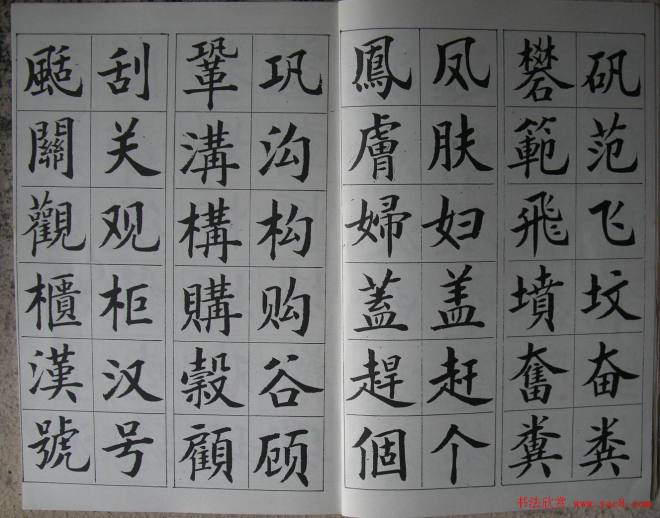 矾范飞坟奋粪
礬範飛墳奮糞
凤肤妇盖赶个
鳳膚婦蓋趕個
巩沟构购谷顾
鞏溝構購穀顧
刮关观柜汉号
颳關觀櫃漢號
书法欣赏 www.yac8.com